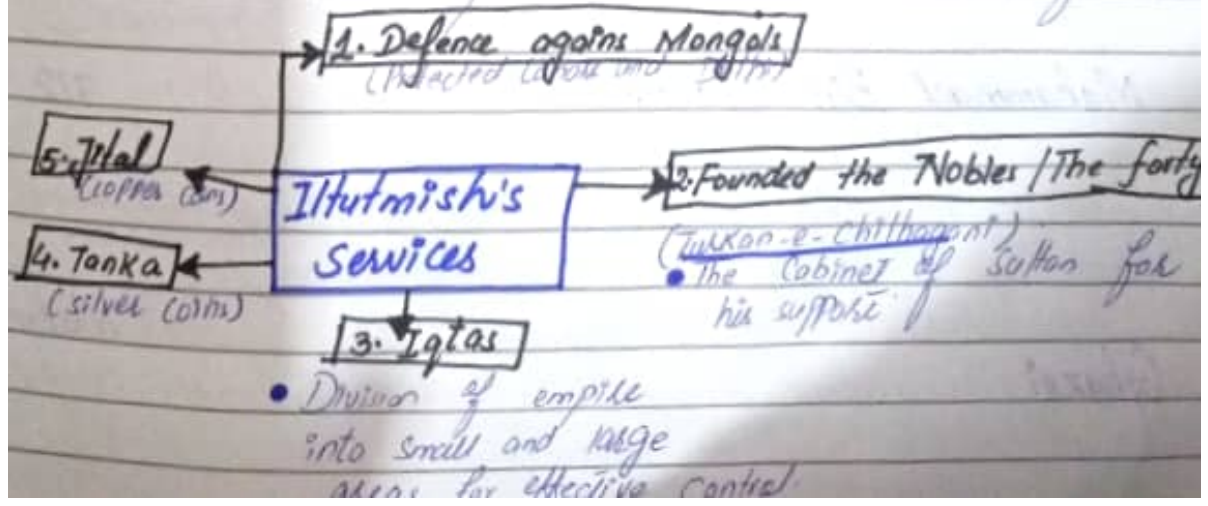 1. Defence agains Mongols
(Protected Lahore and Delhi)
5. Jital
(copper coins)
Iltutmish's
services
2. Founded the Nobles / The forty
(Turkan-e-Chilhagani)
• The Cabinet of Sultan for
his support
4. Tanka
(silver coins)
3. Iqtas
• Division of empire
into small and large
areas for effective control.